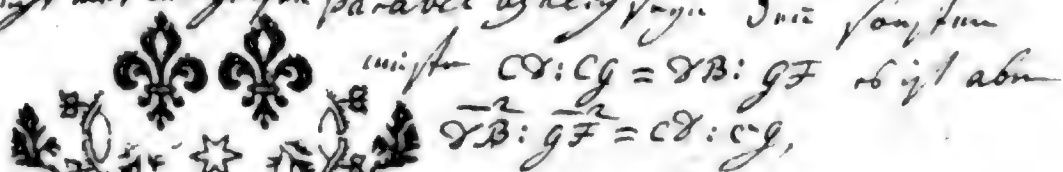 parabel ähnlich seyn denn sonsten
müste CD : CG = DB : GF es ist aber
DB² : GF² = CD : CG,